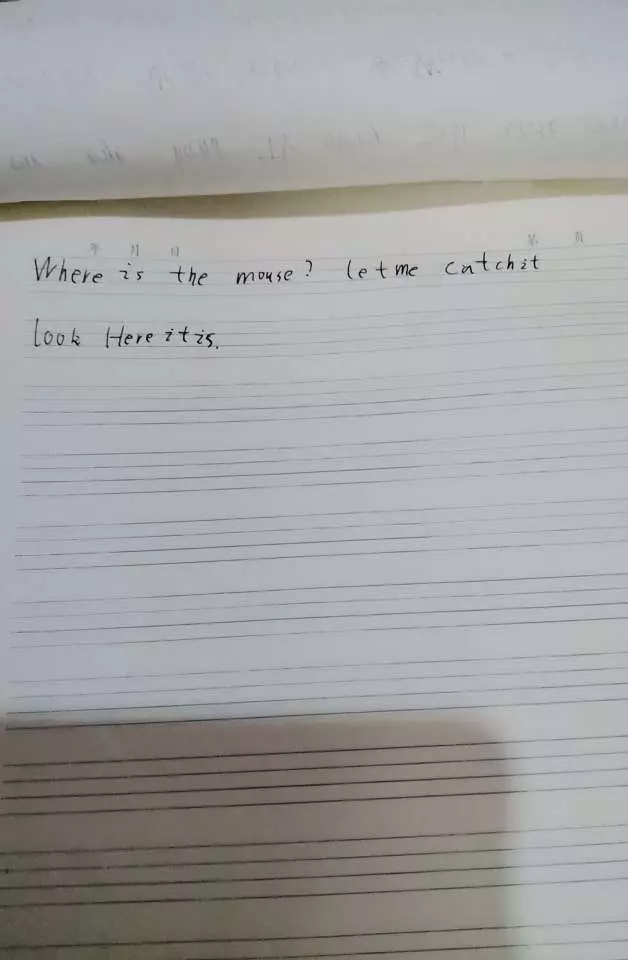 年 月 日 第 页
Where is the mouse? let me catch it
look Here it is.